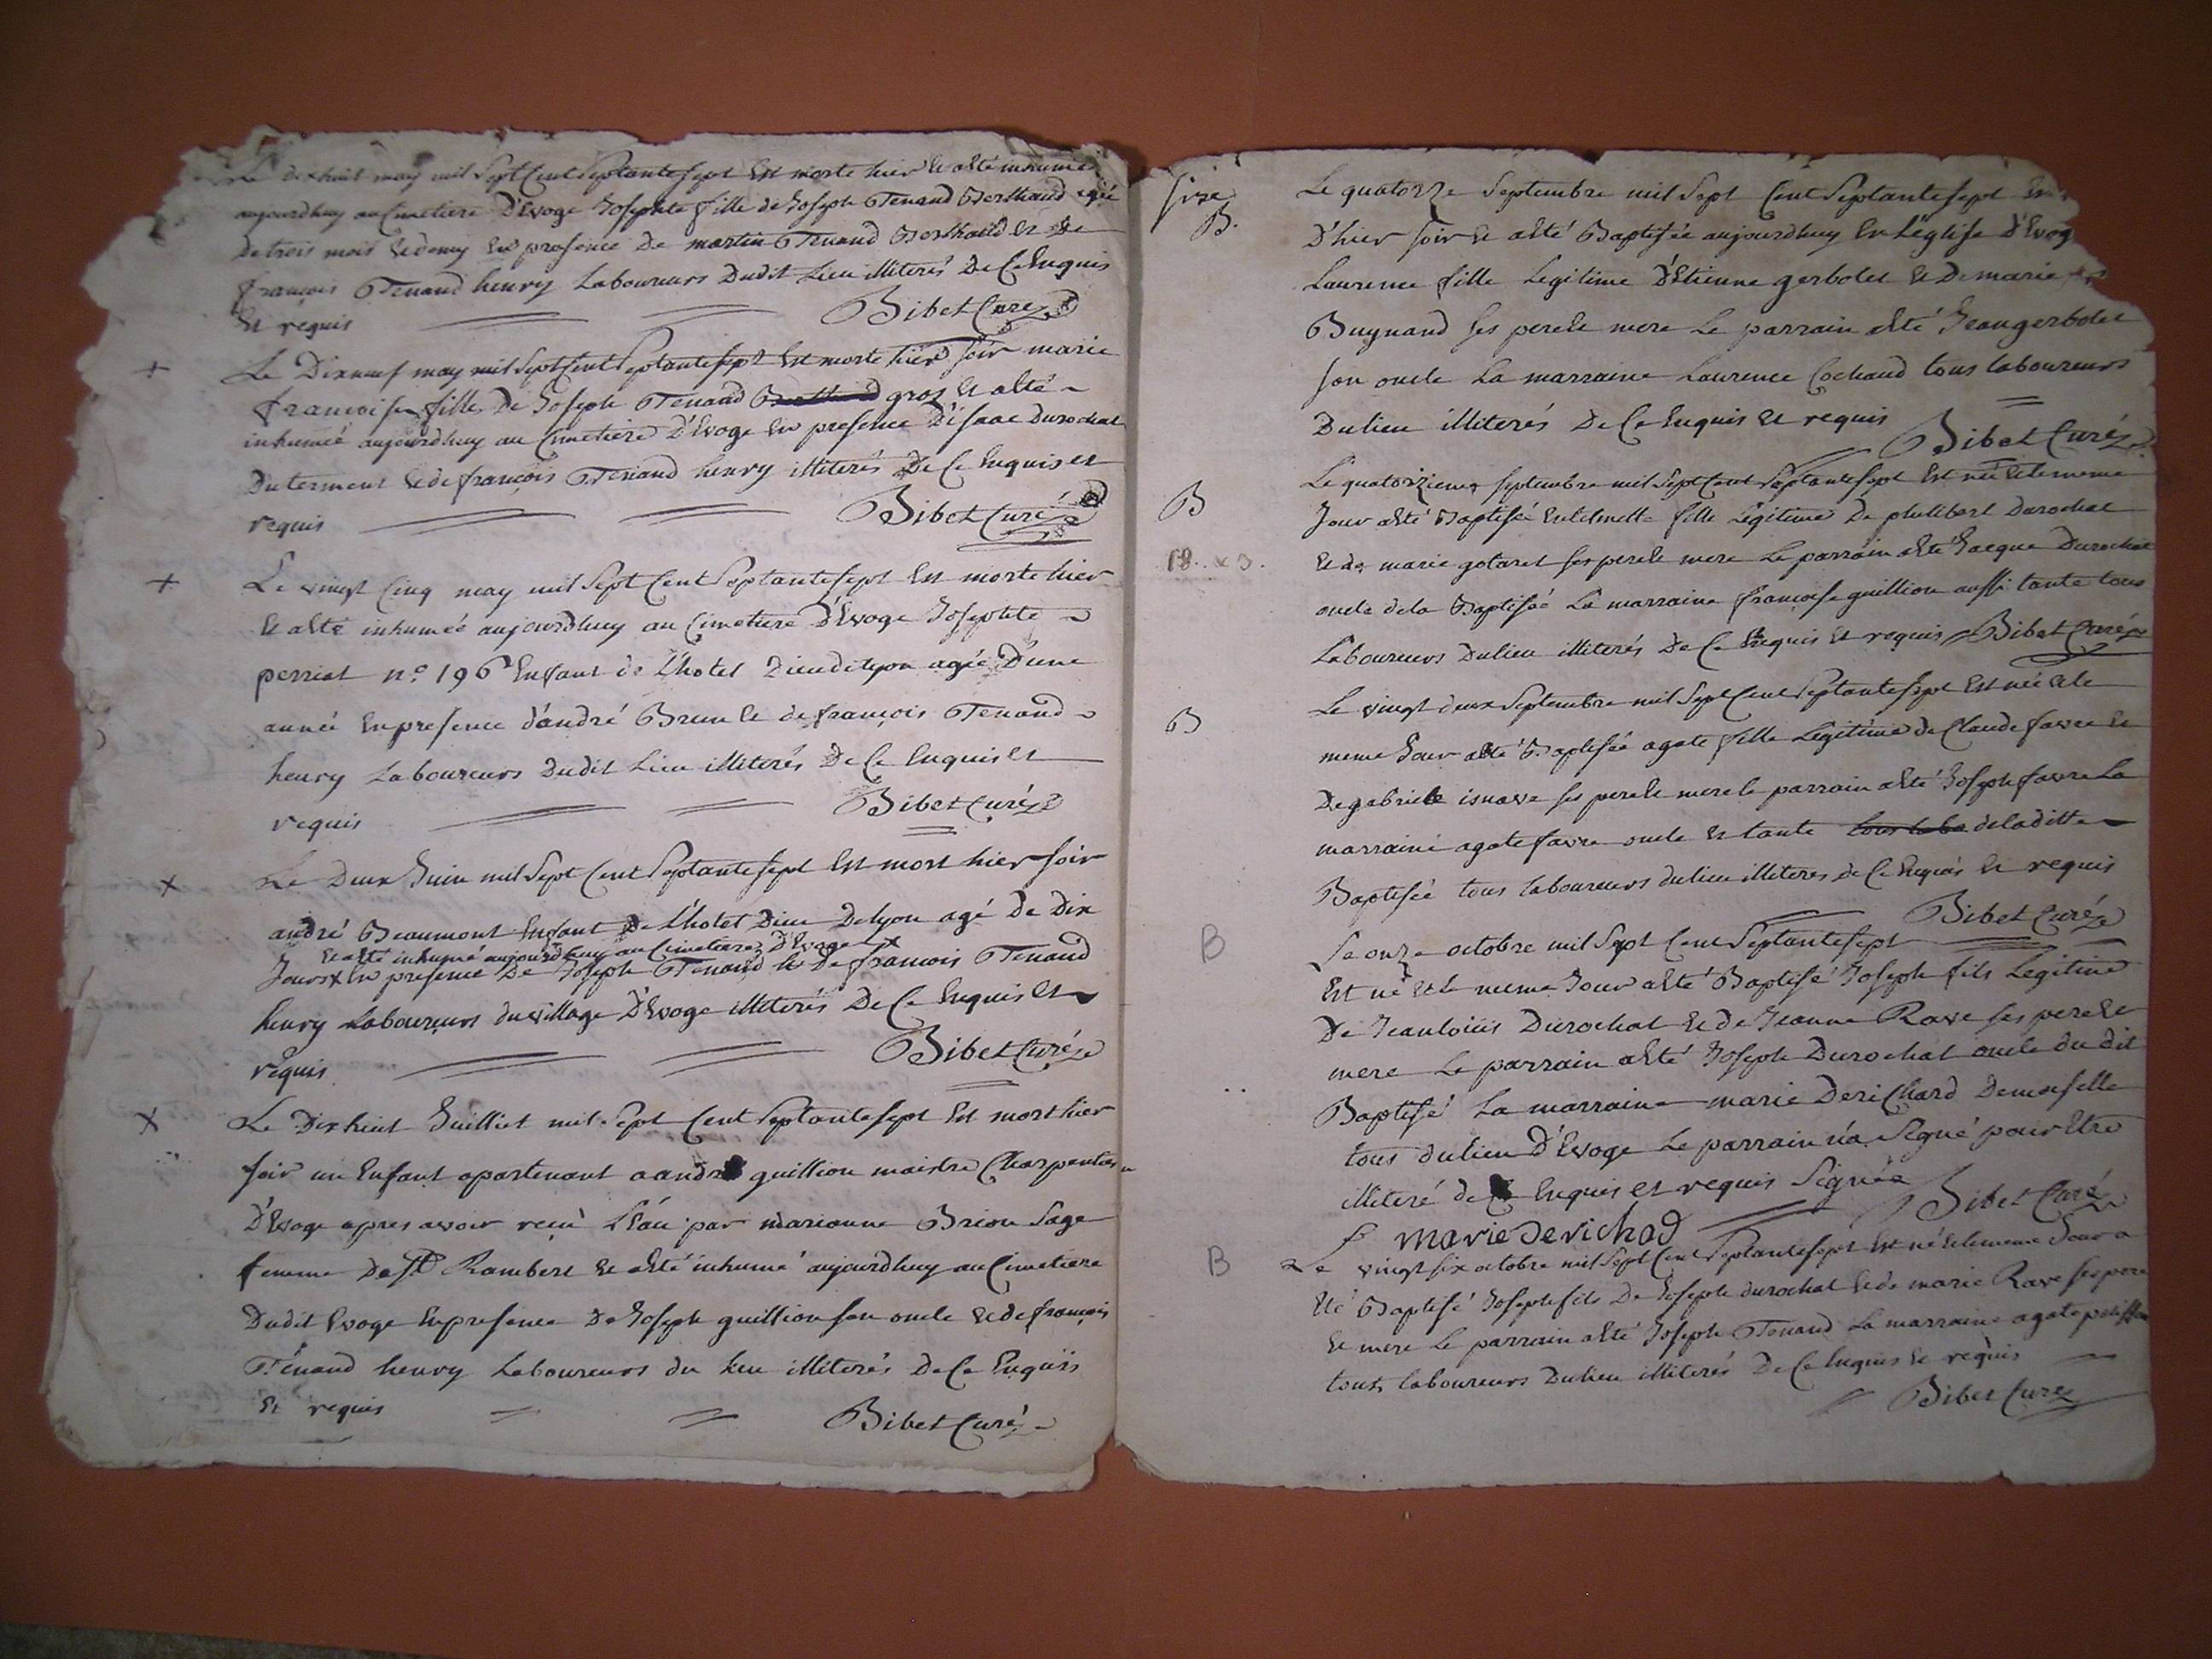 Le dixhuit may mil Sept Cent Septante sept Est morte hier Et atté inhumée
aujourdhuy au Cimetiere D'Evoge Josephte fille de Joseph Tenand Berthaud agée
de trois mois Et demy En presence De martin Tenand Berthaud Et De
françois Tenand henry Laboureurs Dudit Lieu illiterés De Ce Enquis
Et requis Bibet Curé
+ Le Dixneuf may mil Sept Cent Septante sept Est morte hier soir marie
françoise fille De Joseph Tenand gros Et atté
inhumée aujourdhuy au Cimetiere D'Evoge En presence D'isaac Durochat
Du terment Et de françois Tenand henry illiterés De Ce Enquis Et
requis Bibet Curé
+ Le vingt Cinq may mil Sept Cent Septante sept Est morte hier
Et atté inhumée aujourdhuy au Cimetiere D'Evoge Josephte
perriat n.o 196 Enfant de L'hotel Dieu de Lyon agée D'une
année En presence d'andré Brun Et de françois Tenand
henry Laboureurs Dudit Lieu illiterés De Ce Enquis Et
requis Bibet Curé
x Le Deux Juin mil Sept Cent Septante sept Est mort hier soir
andré Beaumont Enfant De L'hotel Dieu De Lyon agé De Dix
Et atté inhumé aujourdhuy au Cimetiere D'Evoge x
Jours x En presence De Joseph Tenand Et De francois Tenand
henry Laboureurs du village D'Evoge illiterés De Ce Enquis Et
requis Bibet Curé
x Le Dixhuit Juilliet mil Sept Cent Septante sept Est mort hier
soir un Enfant apartenant a andré guillion maistre Charpentier
D'Evoge apres avoir reçu L'Eau par marianne Brion Sage
femme De St Rambert Et atté inhumé aujourdhuy au Cimetiere
Dudit Evoge En presence De Joseph guillion son oncle Et de françois
Tenand henry Laboureurs du Lieu illiterés De Ce Enquis
Et requis Bibet Curé
size
B. Le quatorze Septembre mil Sept Cent Septante sept
D'hier soir Et atté Baptisée aujourdhuy En L'église D'Evog
Laurence fille Legitime D'Etienne gerbolet Et De marie
Buynand ses pere Et mere Le parrain atté Jean gerbolet
son oncle La marraine Laurence Cochaud tous laboureurs
Du lieu illiterés De Ce Enquis Et requis Bibet Curé
B Le quatorzieme septembre mil Sept Cent Septante sept Est née Et le meme
Jour atté Baptisée fille Legitime De philibert Durochat
18. x 3. Et de marie gotaret ses pere Et mere Le parrain atté Jacque Durochat
oncle de la Baptisée La marraine françoise guillion aussi tante tous
Laboureurs Du lieu illiterés De Ce Enquis Et requis Bibet Curé
B Le vingt deux Septembre mil Sept Cent Septante sept Est née Et le
meme Jour atté Baptisée agate fille Legitime de Claude favre Et
De gabriele ses pere Et mere le parrain atté Joseph favre La
marraine agate favre oncle Et tante de la ditte
Baptisée tous laboureurs du lieu illiteres de Ce Enquis Et requis
Bibet Curé
B Le onze octobre mil Sept Cent Septante sept
Est né Et le meme Jour atté Baptisé Joseph fils Legitime
De Jean loüis Durochat Et de Jeanne Rave ses pere Et
mere Le parrain atté Joseph Durochat oncle du dit
Baptisé La marraine marie Derichard Demoiselle
tous du lieu D'Evoge Le parrain n'a Signé pour Etre
illiteré de Ce Enquis et requis Signée Bibet Curé
marie Derichad
B Le vingt six octobre mil Sept Cent Septante sept Est né Et le meme Jour a
Eté Baptisé Joseph fils De Joseph durochat Et de marie Rave ses pere
Et mere Le parrain atté Joseph Tenand La marraine agate
tous laboureurs Du lieu illiterés De Ce Enquis Et requis
Bibet Curé